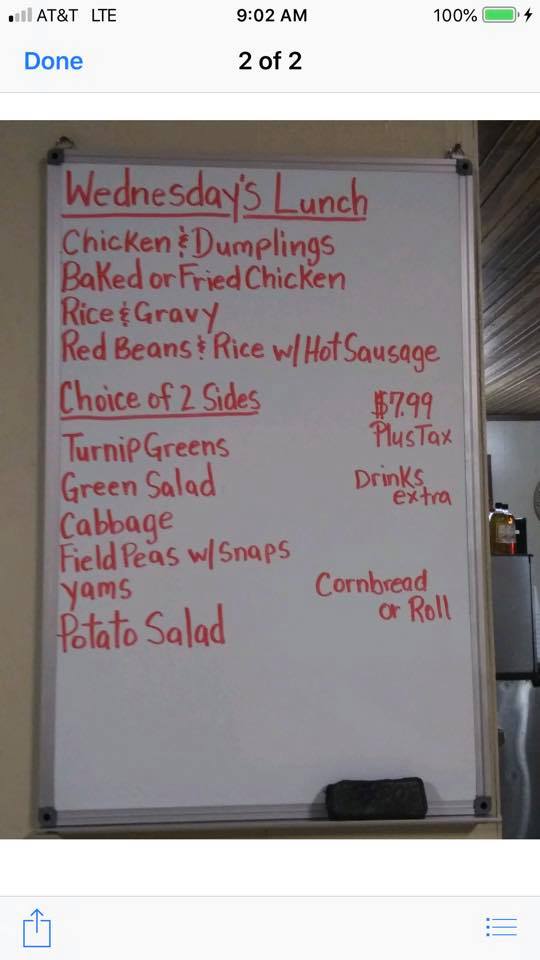 AT&T LTE 9:02 AM 100%
Done 2 of 2
Wednesday's Lunch
Chicken & Dumplings
Baked or Fried Chicken
Rice & Gravy
Red Beans & Rice w/ Hot Sausage
Choice of 2 Sides
$7.99
Plus Tax
Turnip Greens
Green Salad
Drinks
extra
Cabbage
Field Peas w/ Snaps
Yams
Cornbread
or Roll
Potato Salad